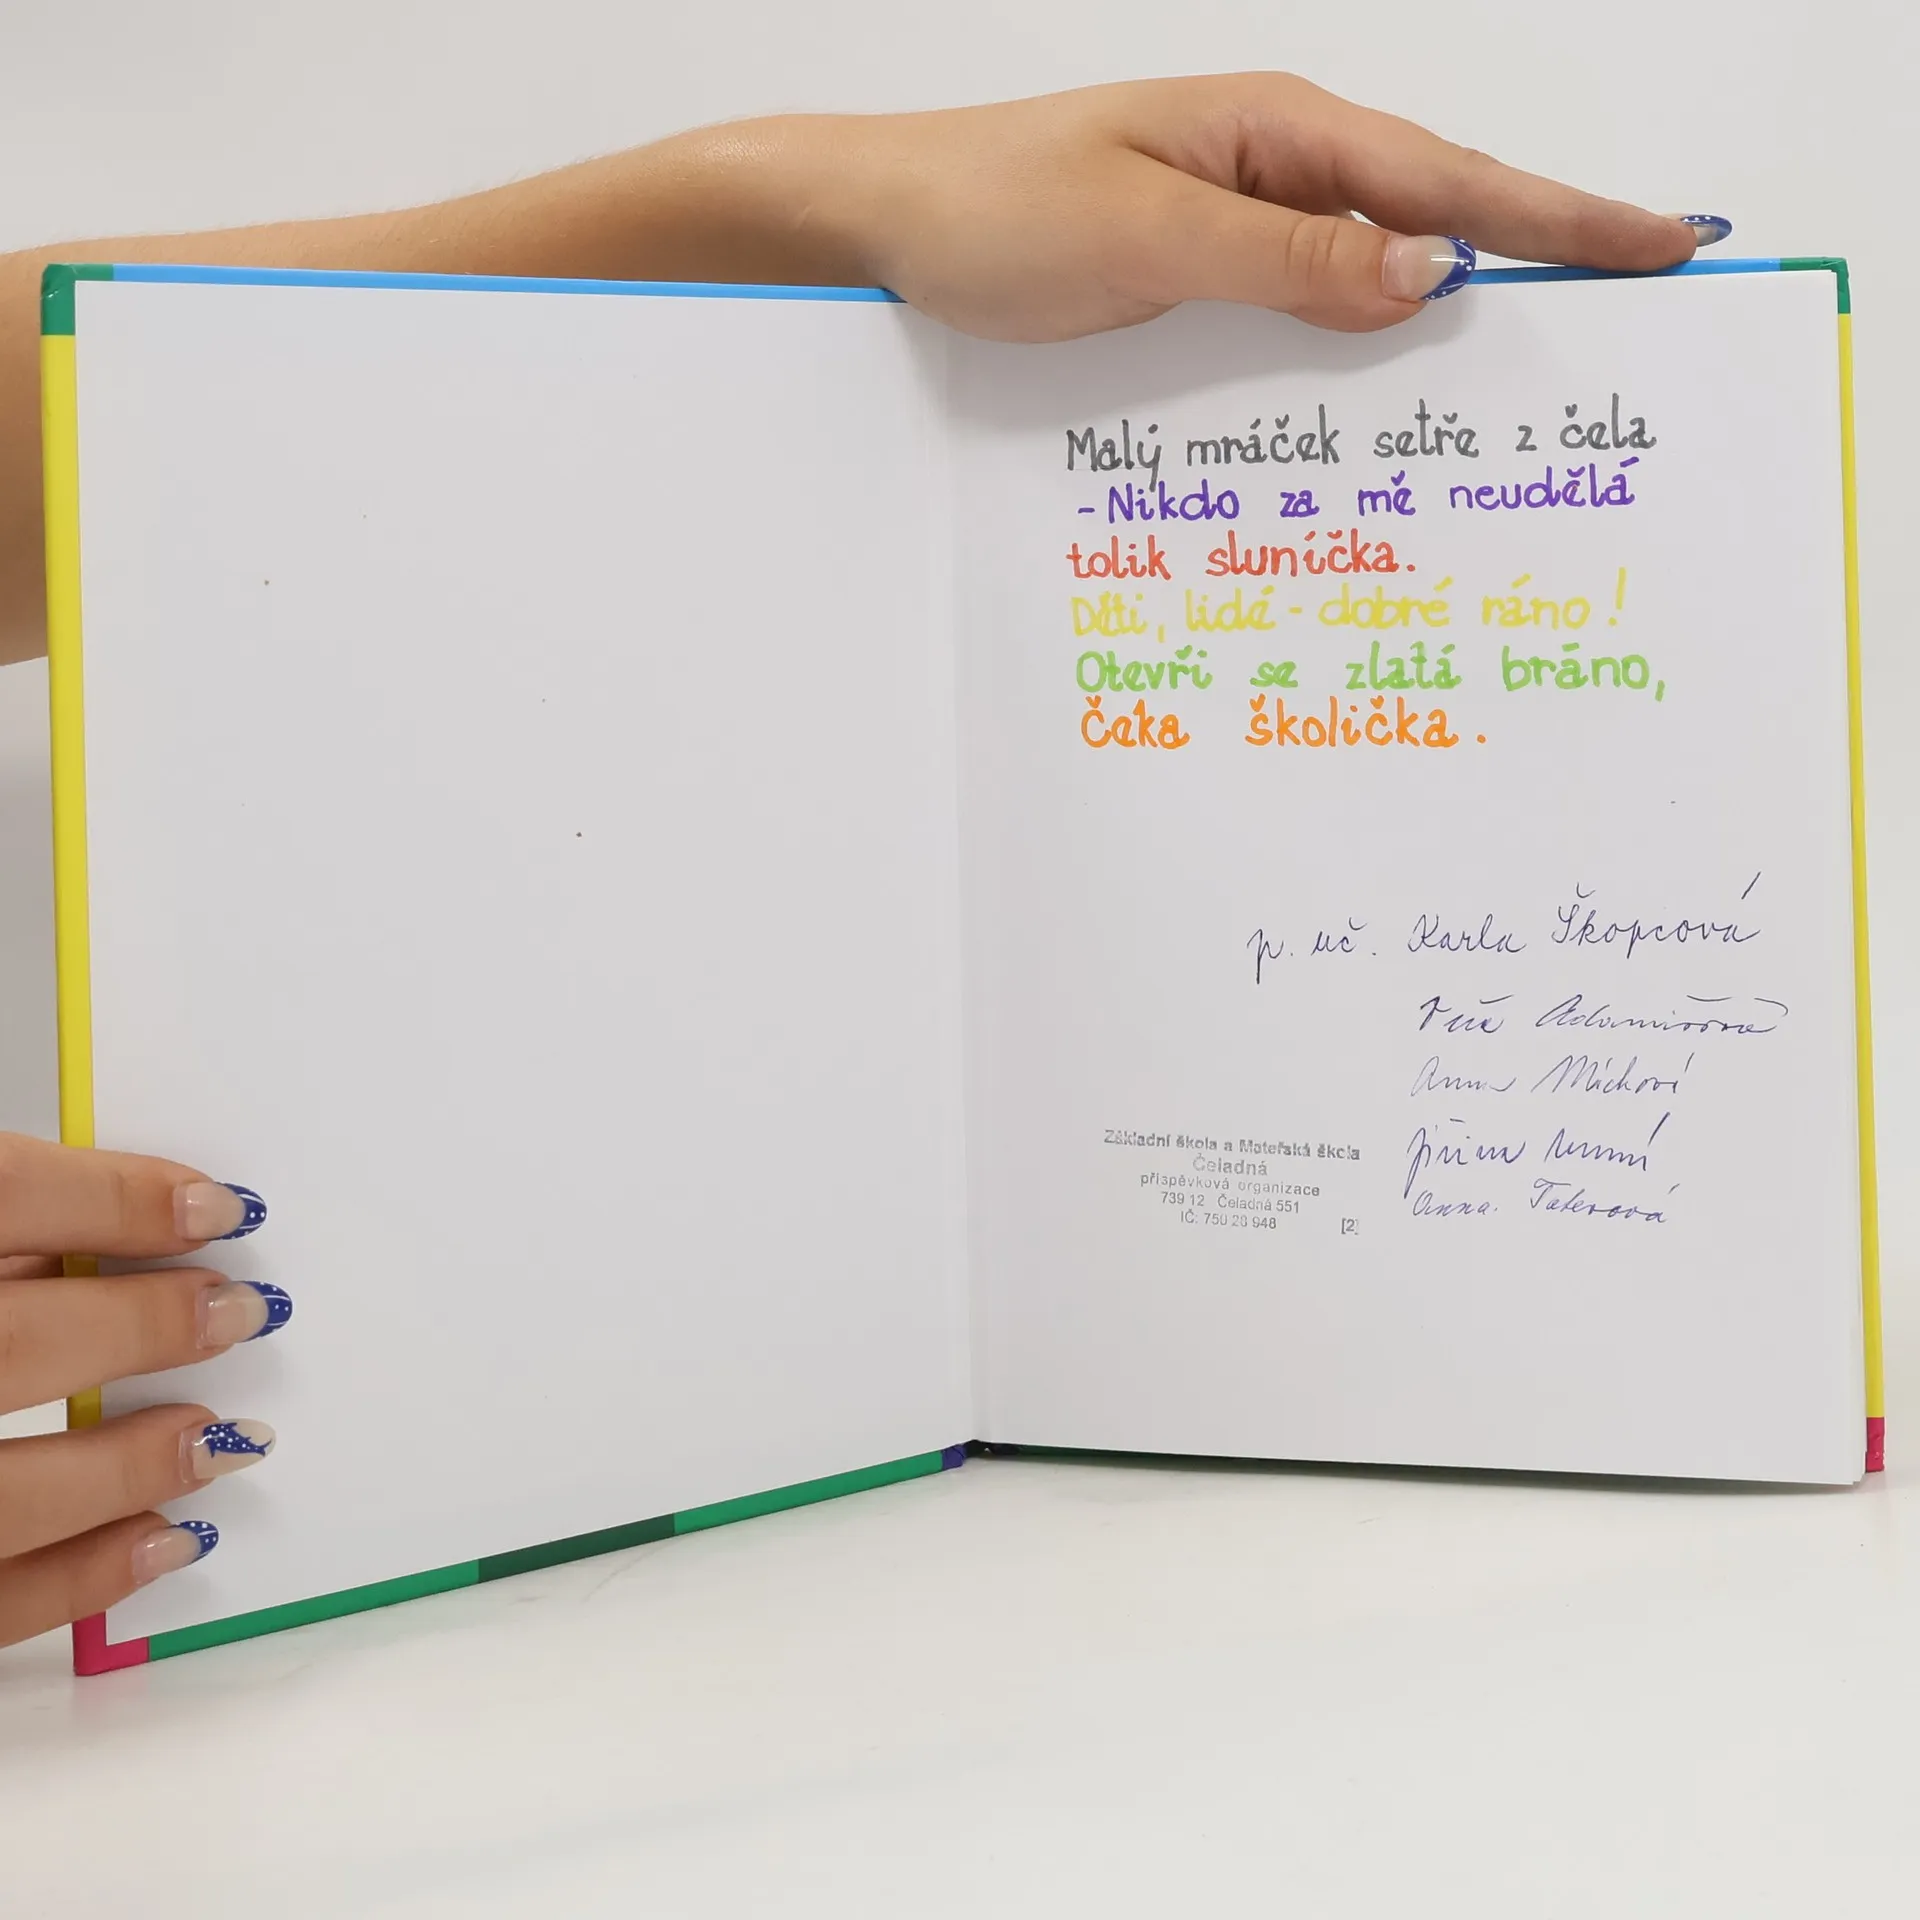 Malý mráček setře z čela
- Nikdo za mě neudělá
tolik sluníčka.
Děti, lidé - dobré ráno!
Otevři se zlatá bráno,
Čeka školička.
p. uč. Karla Škopcová
Anna
Jiřina
Anna. Taterová
Základní škola a Mateřská škola
Čeladná
příspěvková organizace
739 12 Čeladná 551
IČ: 750 26 948 [2]